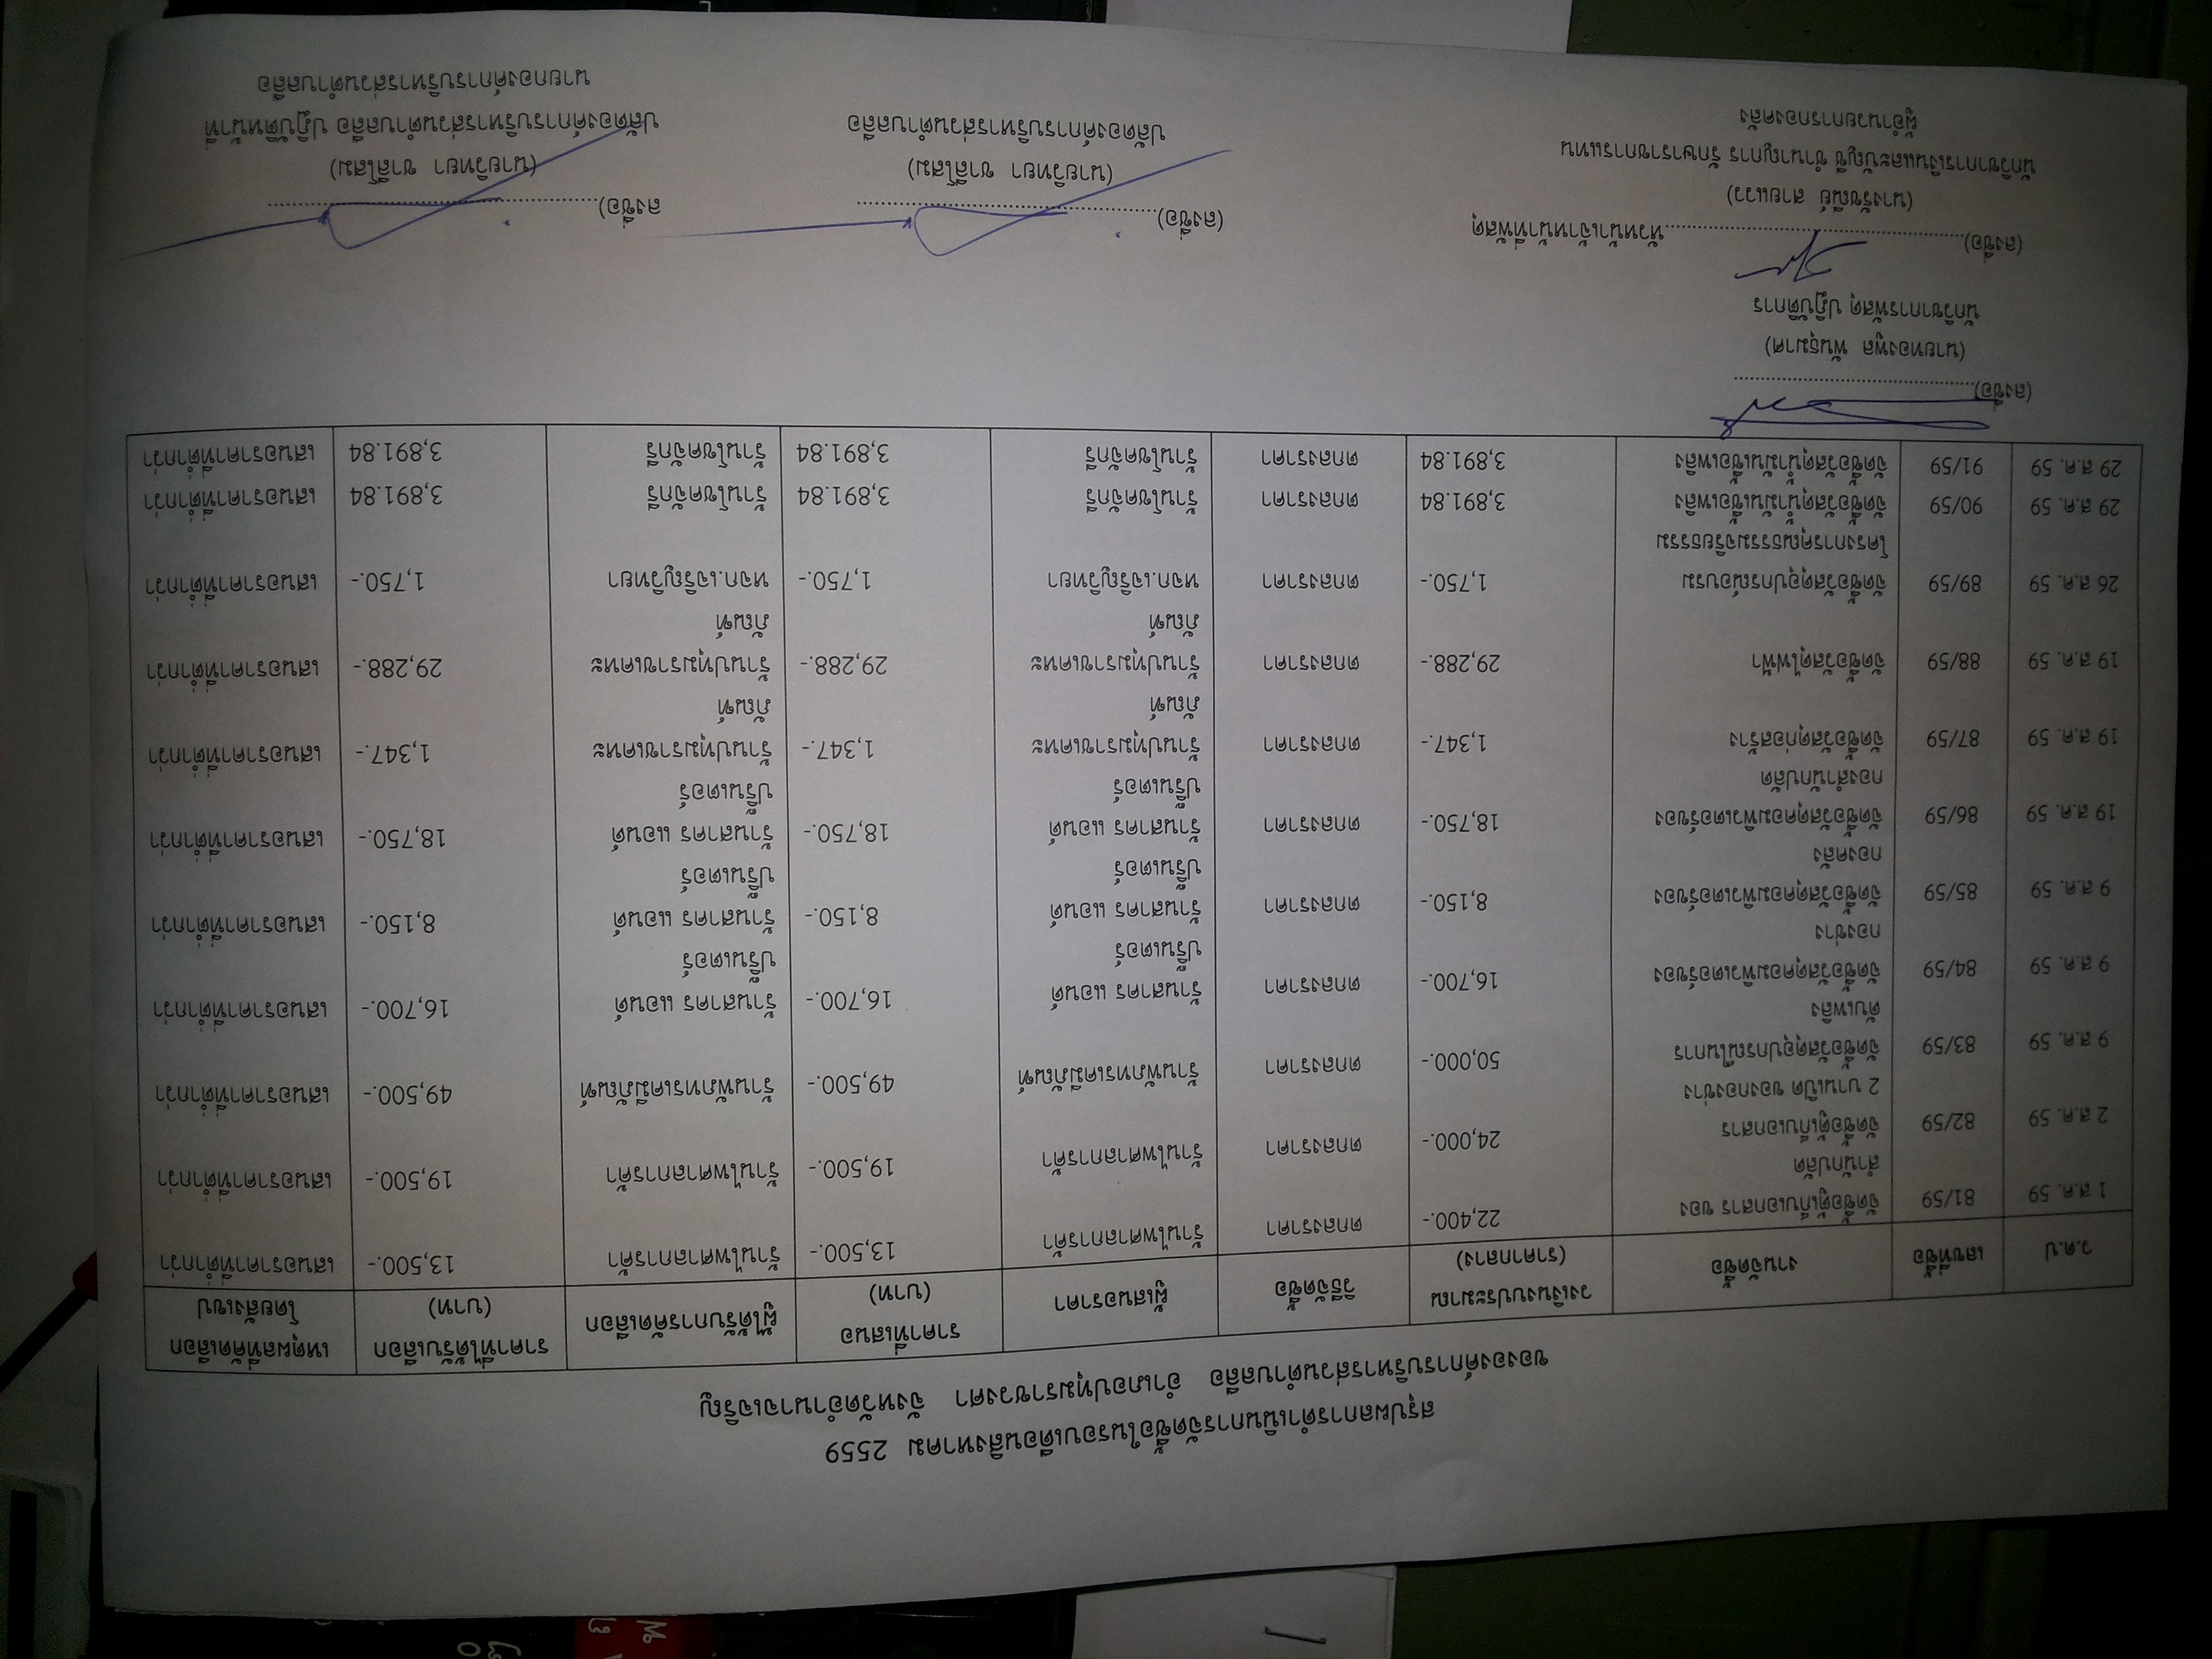 สรุปผลการดำเนินการจัดซื้อในรอบเดือนสิงหาคม 2559
ขององค์การบริหารส่วนตำบลลือ อำเภอปทุมราชวงศา จังหวัดอำนาจเจริญ
ว.ด.ป เลขที่ซื้อ งานจัดซื้อ วงเงินงบประมาณ (ราคากลาง) วิธีจัดซื้อ ผู้เสนอราคา ราคาที่เสนอ (บาท) ผู้ได้รับการคัดเลือก ราคาที่ได้รับเลือก (บาท) เหตุผลที่คัดเลือกโดยสังเขป
1 ส.ค. 59 81/59 จัดซื้อตู้เก็บเอกสาร ของ 22,400.- ตกลงราคา ร้านไพศาลการค้า 13,500.- ร้านไพศาลการค้า 13,500.- เสนอราคาที่ต่ำกว่า
สำนักปลัด
2 ส.ค. 59 82/59 จัดซื้อตู้เก็บเอกสาร 24,000.- ตกลงราคา ร้านไพศาลการค้า 19,500.- ร้านไพศาลการค้า 19,500.- เสนอราคาที่ต่ำกว่า
2 บานเปิด ของกองช่าง
9 ส.ค. 59 83/59 จัดซื้อวัสดุอุปกรณ์ในการ 50,000.- ตกลงราคา ร้านพัภทรเคมีภัณฑ์ 49,500.- ร้านพัภทรเคมีภัณฑ์ 49,500.- เสนอราคาที่ต่ำกว่า
ดับเพลิง
9 ส.ค. 59 84/59 จัดซื้อวัสดุคอมพิวเตอร์ของ 16,700.- ตกลงราคา ร้านสาคร แอนด์ 16,700.- ร้านสาคร แอนด์ 16,700.- เสนอราคาที่ต่ำกว่า
กองช่าง ปริ้นเตอร์ ปริ้นเตอร์
9 ส.ค. 59 85/59 จัดซื้อวัสดุคอมพิวเตอร์ของ 8,150.- ตกลงราคา ร้านสาคร แอนด์ 8,150.- ร้านสาคร แอนด์ 8,150.- เสนอราคาที่ต่ำกว่า
กองคลัง ปริ้นเตอร์ ปริ้นเตอร์
19 ส.ค. 59 86/59 จัดซื้อวัสดุคอมพิวเตอร์ของ 18,750.- ตกลงราคา ร้านสาคร แอนด์ 18,750.- ร้านสาคร แอนด์ 18,750.- เสนอราคาที่ต่ำกว่า
กองสำนักปลัด ปริ้นเตอร์ ปริ้นเตอร์
19 ส.ค. 59 87/59 จัดซื้อวัสดุก่อสร้าง 1,347.- ตกลงราคา ร้านปทุมราชเคหะ 1,347.- ร้านปทุมราชเคหะ 1,347.- เสนอราคาที่ต่ำกว่า
ภัณฑ์ ภัณฑ์
19 ส.ค. 59 88/59 จัดซื้อวัสดุไฟฟ้า 29,288.- ตกลงราคา ร้านปทุมราชเคหะ 29,288.- ร้านปทุมราชเคหะ 29,288.- เสนอราคาที่ต่ำกว่า
ภัณฑ์ ภัณฑ์
26 ส.ค. 59 89/59 จัดซื้อวัสดุอุปกรณ์อบรม 1,750.- ตกลงราคา หจก.เจริญวิทยา 1,750.- หจก.เจริญวิทยา 1,750.- เสนอราคาที่ต่ำกว่า
โครงการคุณธรรมจริยธรรม
29 ส.ค. 59 90/59 จัดซื้อวัสดุน้ำมันเชื้อเพลิง 3,891.84 ตกลงราคา ร้านโชคจักรี 3,891.84 ร้านโชคจักรี 3,891.84 เสนอราคาที่ต่ำกว่า
29 ส.ค. 59 91/59 จัดซื้อวัสดุน้ำมันเชื้อเพลิง 3,891.84 ตกลงราคา ร้านโชคจักรี 3,891.84 ร้านโชคจักรี 3,891.84 เสนอราคาที่ต่ำกว่า
(ลงชื่อ)
(นายทองพูล พันธุมาศ)
นักวิชาการพัสดุ ปฏิบัติการ
(ลงชื่อ) หัวหน้าเจ้าหน้าที่พัสดุ
(นางรัชณีย์ สายแวว)
นักวิชาการเงินและบัญชี ชำนาญการ รักษาราชการแทน
ผู้อำนวยการกองคลัง
(ลงชื่อ)
(นายวิทยา ชาลีโสม)
ปลัดองค์การบริหารส่วนตำบลลือ
ลงชื่อ)
(นายวิทยา ชาลีโสม)
ปลัดองค์การบริหารส่วนตำบลลือ ปฏิบัติหน้าที่
นายกองค์การบริหารส่วนตำบลลือ